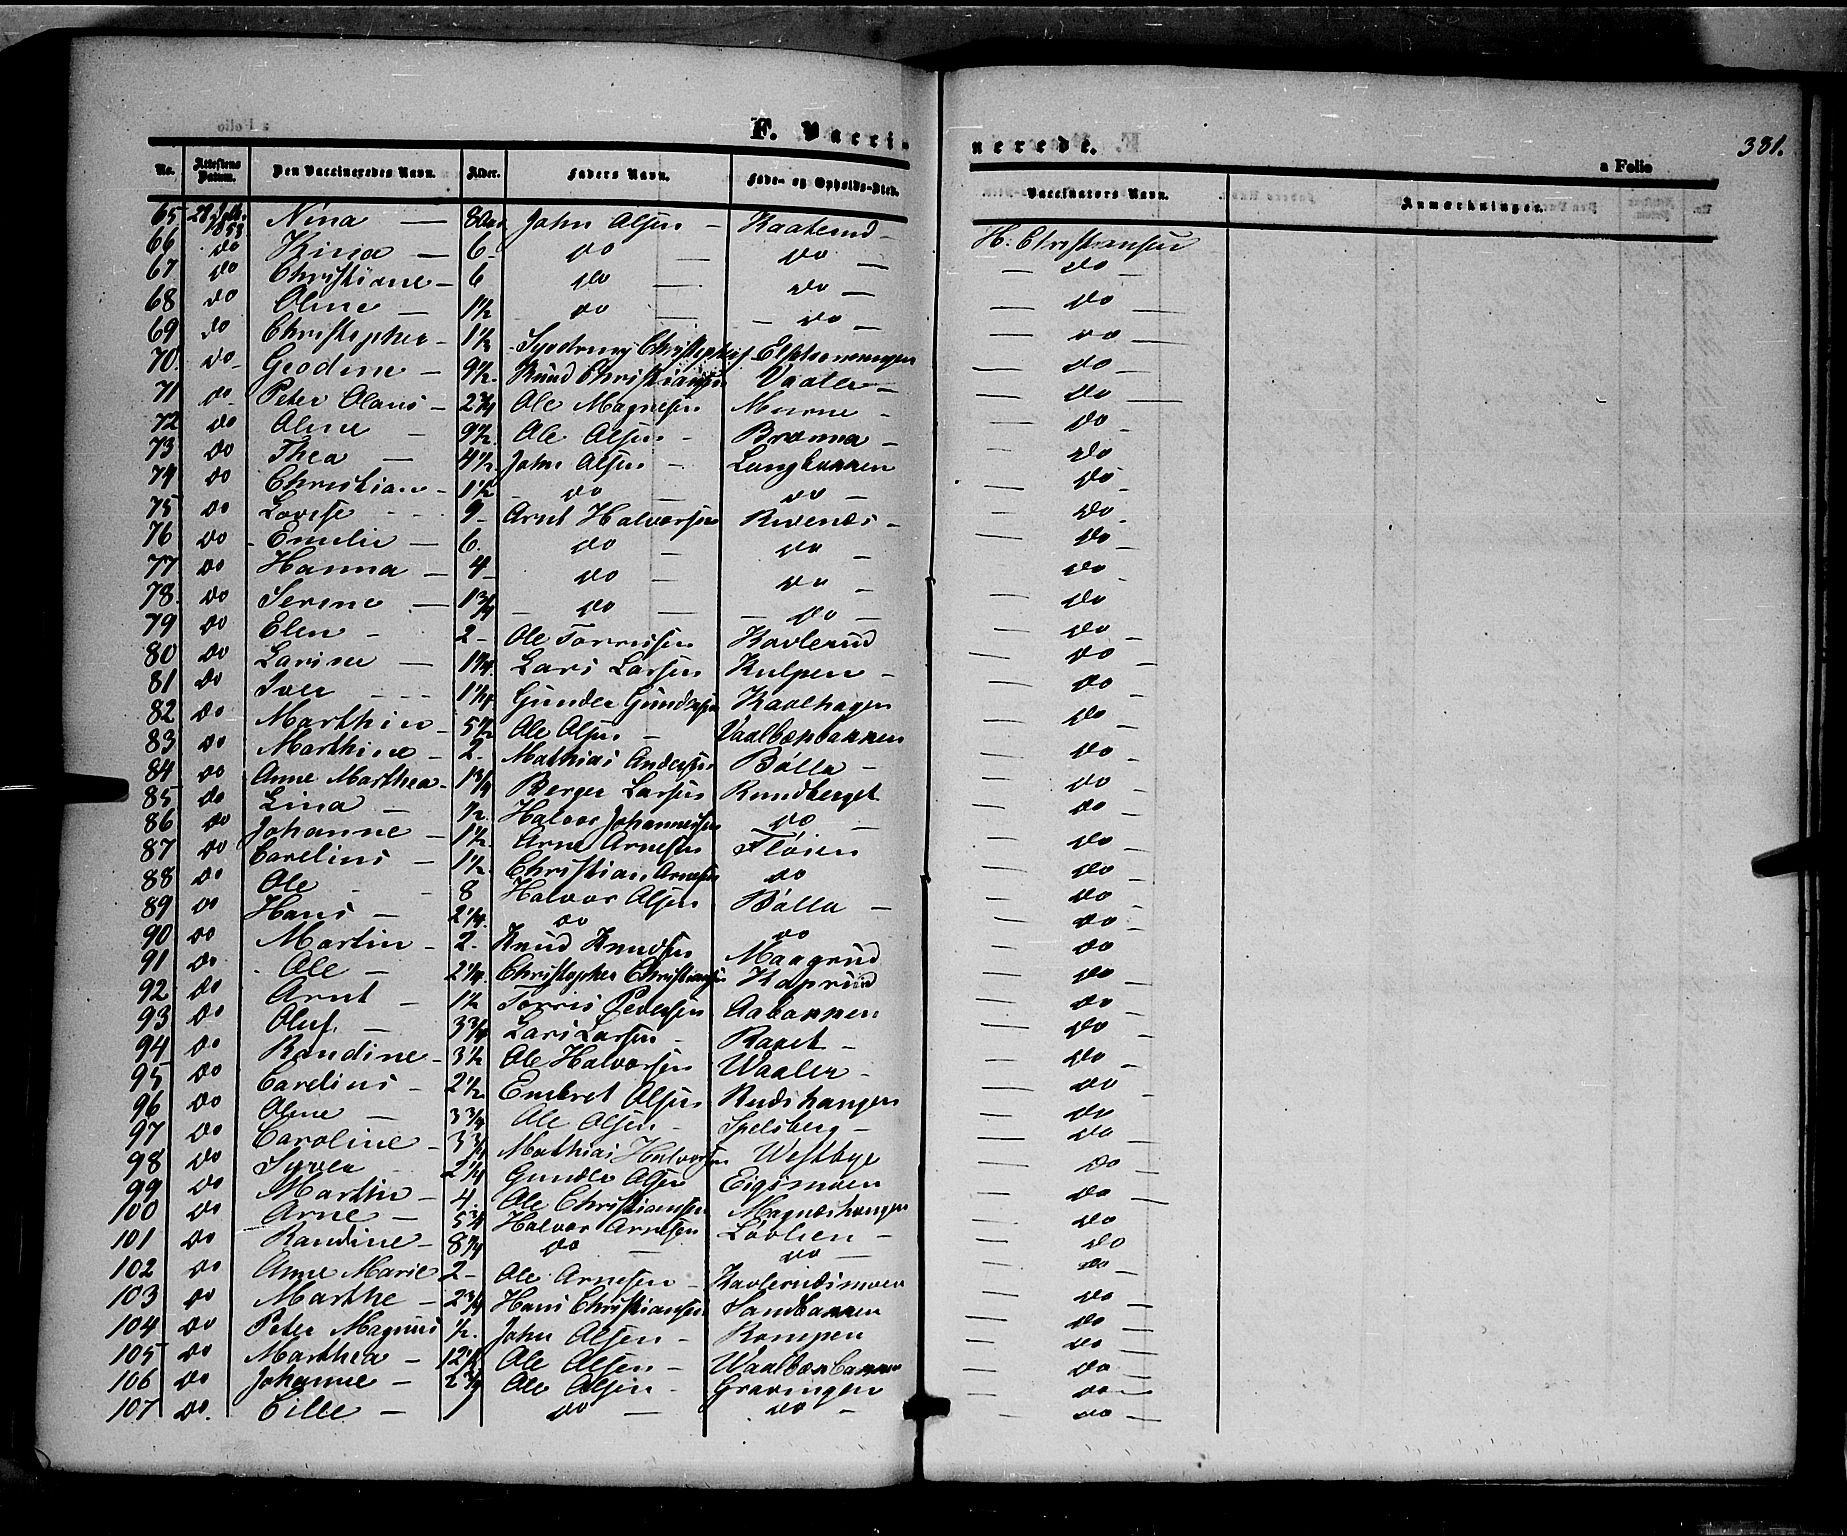 F. Vacci-
nerede.
a Folio
381.
No. Attestens Datum. Den Vaccineredes Navn. Alder. Faders Navn. Føde- og Opholds-Sted. Vaccinators Navn. Anmærkninger.
65 1853 Nina — 8 John Olsen — Kaaterud — H. Christiansen
66 do Kina — 6 - do — do — — do —
67 do Christiane - 6 do — do — — do —
68 do Oline — 1½ do — — do — — do —
69 do Christopher - 1½ Christophers — do —
70. do - Geodine — 9½ Knud Christiansen Vaaler — — do —
71 do - Peter Olaus - 2¾ Ole Magnesen Murne - — do -
72 do Oline — 9½ Ole Olsen - Brænna — — do
73 do Thea — 4½ John Olsen — Langbakken — do -
74 do Christian - 1½ — do — do — — do -
75 do Lovise - - - 9 - Arnt Halvorsen - — do -
76 do - Emilie — 6. do — do — — do
77 do Hanna — 4 - do — do — — do
78. do Serine — 1¾ - do — — do — — do -
79 do Elen - 2 - Ole Torrissen Kavlerud — do —
80 do Larine — 1¼ Lars Larsen Kulpen — — do
81 do Iver - - - 1¼ Gunder Gundersen Kavlhagen — do -
82 do Marthin - 5½ Ole Olsen - Vaalbænbakken — do -
83 do Marthine - 2. Mathias Andersen Bølla — — do -
84 do Anne Marthea - 1¾ Berger Larsen Rundberget — do -
85 do Lina — ½ Halvor Johannesen do — — do —
86 do Johanne - 1½ Arne Arnesen Fløien — do -
87 do Carelius — 1½ Christian Arnesen do — do -
88 do Ole - - 8 Halvor Olsen Bølla — — do —
89 do Hans — 2¼ do do — do
90 do Martin - 2. Knud Knudsen Maagrud — do —
91 do . Ole — 2¼ Christopher Christiansen Kaprud — do —
92 do Arnt - 1½ Torris Pedersen Aabakken — do —
93 do Oluf. — 3¾ Lars Larsen - Bakket - — do
94 do Randine - 3½ Ole Halvorsen Waaler - — do —
95 do Carelius - 2½ Embret Olsen Rudshaugen — do
96 do Oline — 3¾ Ole Olsen - Spelsberg — — do —
97 do Caroline - 3¾ Mathias Halvorsen Westbye — do
98 do Syver - 2¼ Gunder Olsen Eigsmoen — do —
99 do Marthe - 4 Ole Christiansen Magneshaugen — do
100 do Arne — 5¼ Halvor Arnesen Løvlien - — do
101 do Randine - 8¼ do — do — — do —
102 do Anne Marie 2 - Ole Arnesen - Kavlerudsmoen — do —
103 do Marthe - 2¾ Hans Christiansen Sandbakken — do —
104 do Peter Magnus ½. John Olsen - Rompen — do —
105 do Marthea - 12½ Ole Olsen — Vaalbænbakken — do —
106 do Johanne - 2¾ Ole Olsen - Gravingen — do —
107 do. Eille — 1 do — do — — do —